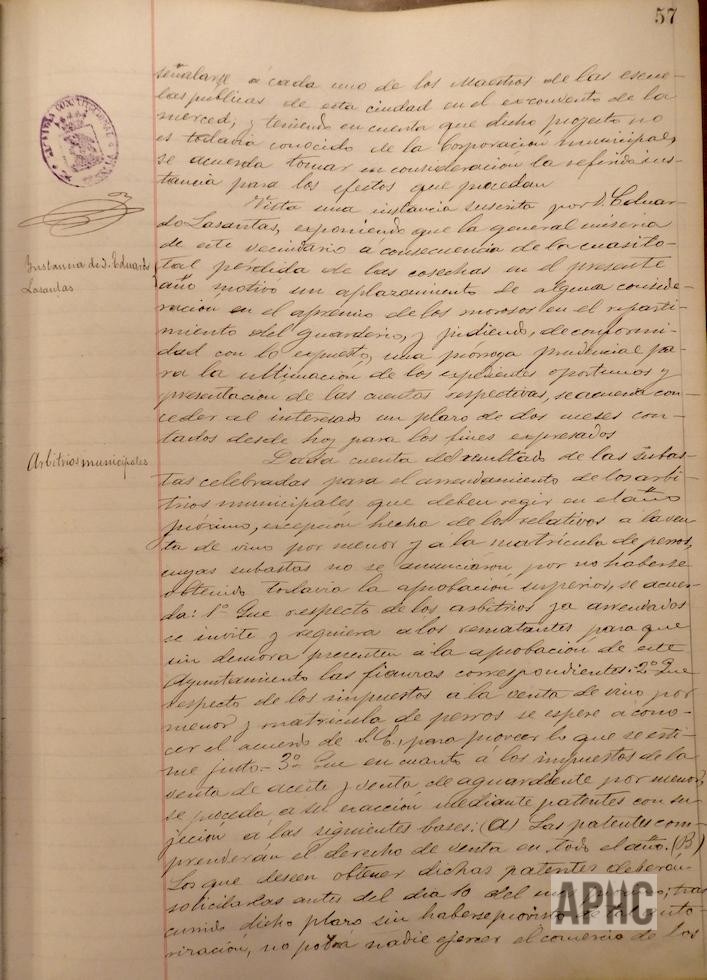 57
señalarse á cada uno de los Maestros de las escue-
las públicas de esta ciudad en el ex-convento de la
Merced, y teniendo en cuenta que dicho projecto no
es todavia conocido de la Corporación municipal,
se acuerda tomar en consideración la referida ins-
tancia para los efectos que procedan
Vista una instancia suscrita por D. Eduar-
do Lasantas, exponiendo que la general miseria
de este vecindario á consecuencia de la cuasi to-
tal pérdida de las cosechas en el presente
año motivó un aplazamiento de alguna conside-
ración en el apremio de los morosos en el reparti-
miento del guarderio, y pidiendo, de conformi-
dad con lo expuesto, una prórroga prudencial pa-
ra la ultimación de los expedientes oportunos y
presentación de las cuentas respectivas, se acuerda con-
ceder al interesado un plazo de dos meses con-
tados desde hoy para los fines expresados
Dada cuenta del resultado de las subas-
tas celebradas para el arrendamiento de los arbi-
trios municipales que deben regir en el año
próximo, excepción hecha de los relativos a la ven-
ta de vino por menor y á la matrícula de perros,
cuyas subastas no se anunciaron por no haberse
obtenido todavia la aprobación superior, se acuer-
da: 1º Que respecto de los arbitrios ya arrendados
se invite y requiera a los rematantes para que
sin demora presenten a la aprobación de este
Ayuntamiento las fianzas correspondientes.- 2º Que
respecto de los impuestos a la venta de vino por
menor y matrícula de perros se espere a cono-
cer el acuerdo de S.E., para proveer lo que se esti-
me justo.- 3º Que en cuanto á los impuestos de la
venta de aceite y venta de aguardiente por menor,
se proceda a su exacción mediante patentes con su-
jeción á las siguientes bases: (A) Las patentes com-
prenderán el derecho de venta en todo el año. (B)
Los que deseen obtener dichas patentes deberán
solicitarlas antes del dia 10 del; tras
currido dicho plazo sin haberse provisto de auto-
rización, no podrá nadie ejercer el comercio de los
Instancia de D. Eduardo
Lasantas
Arbitrios municipales
APHC